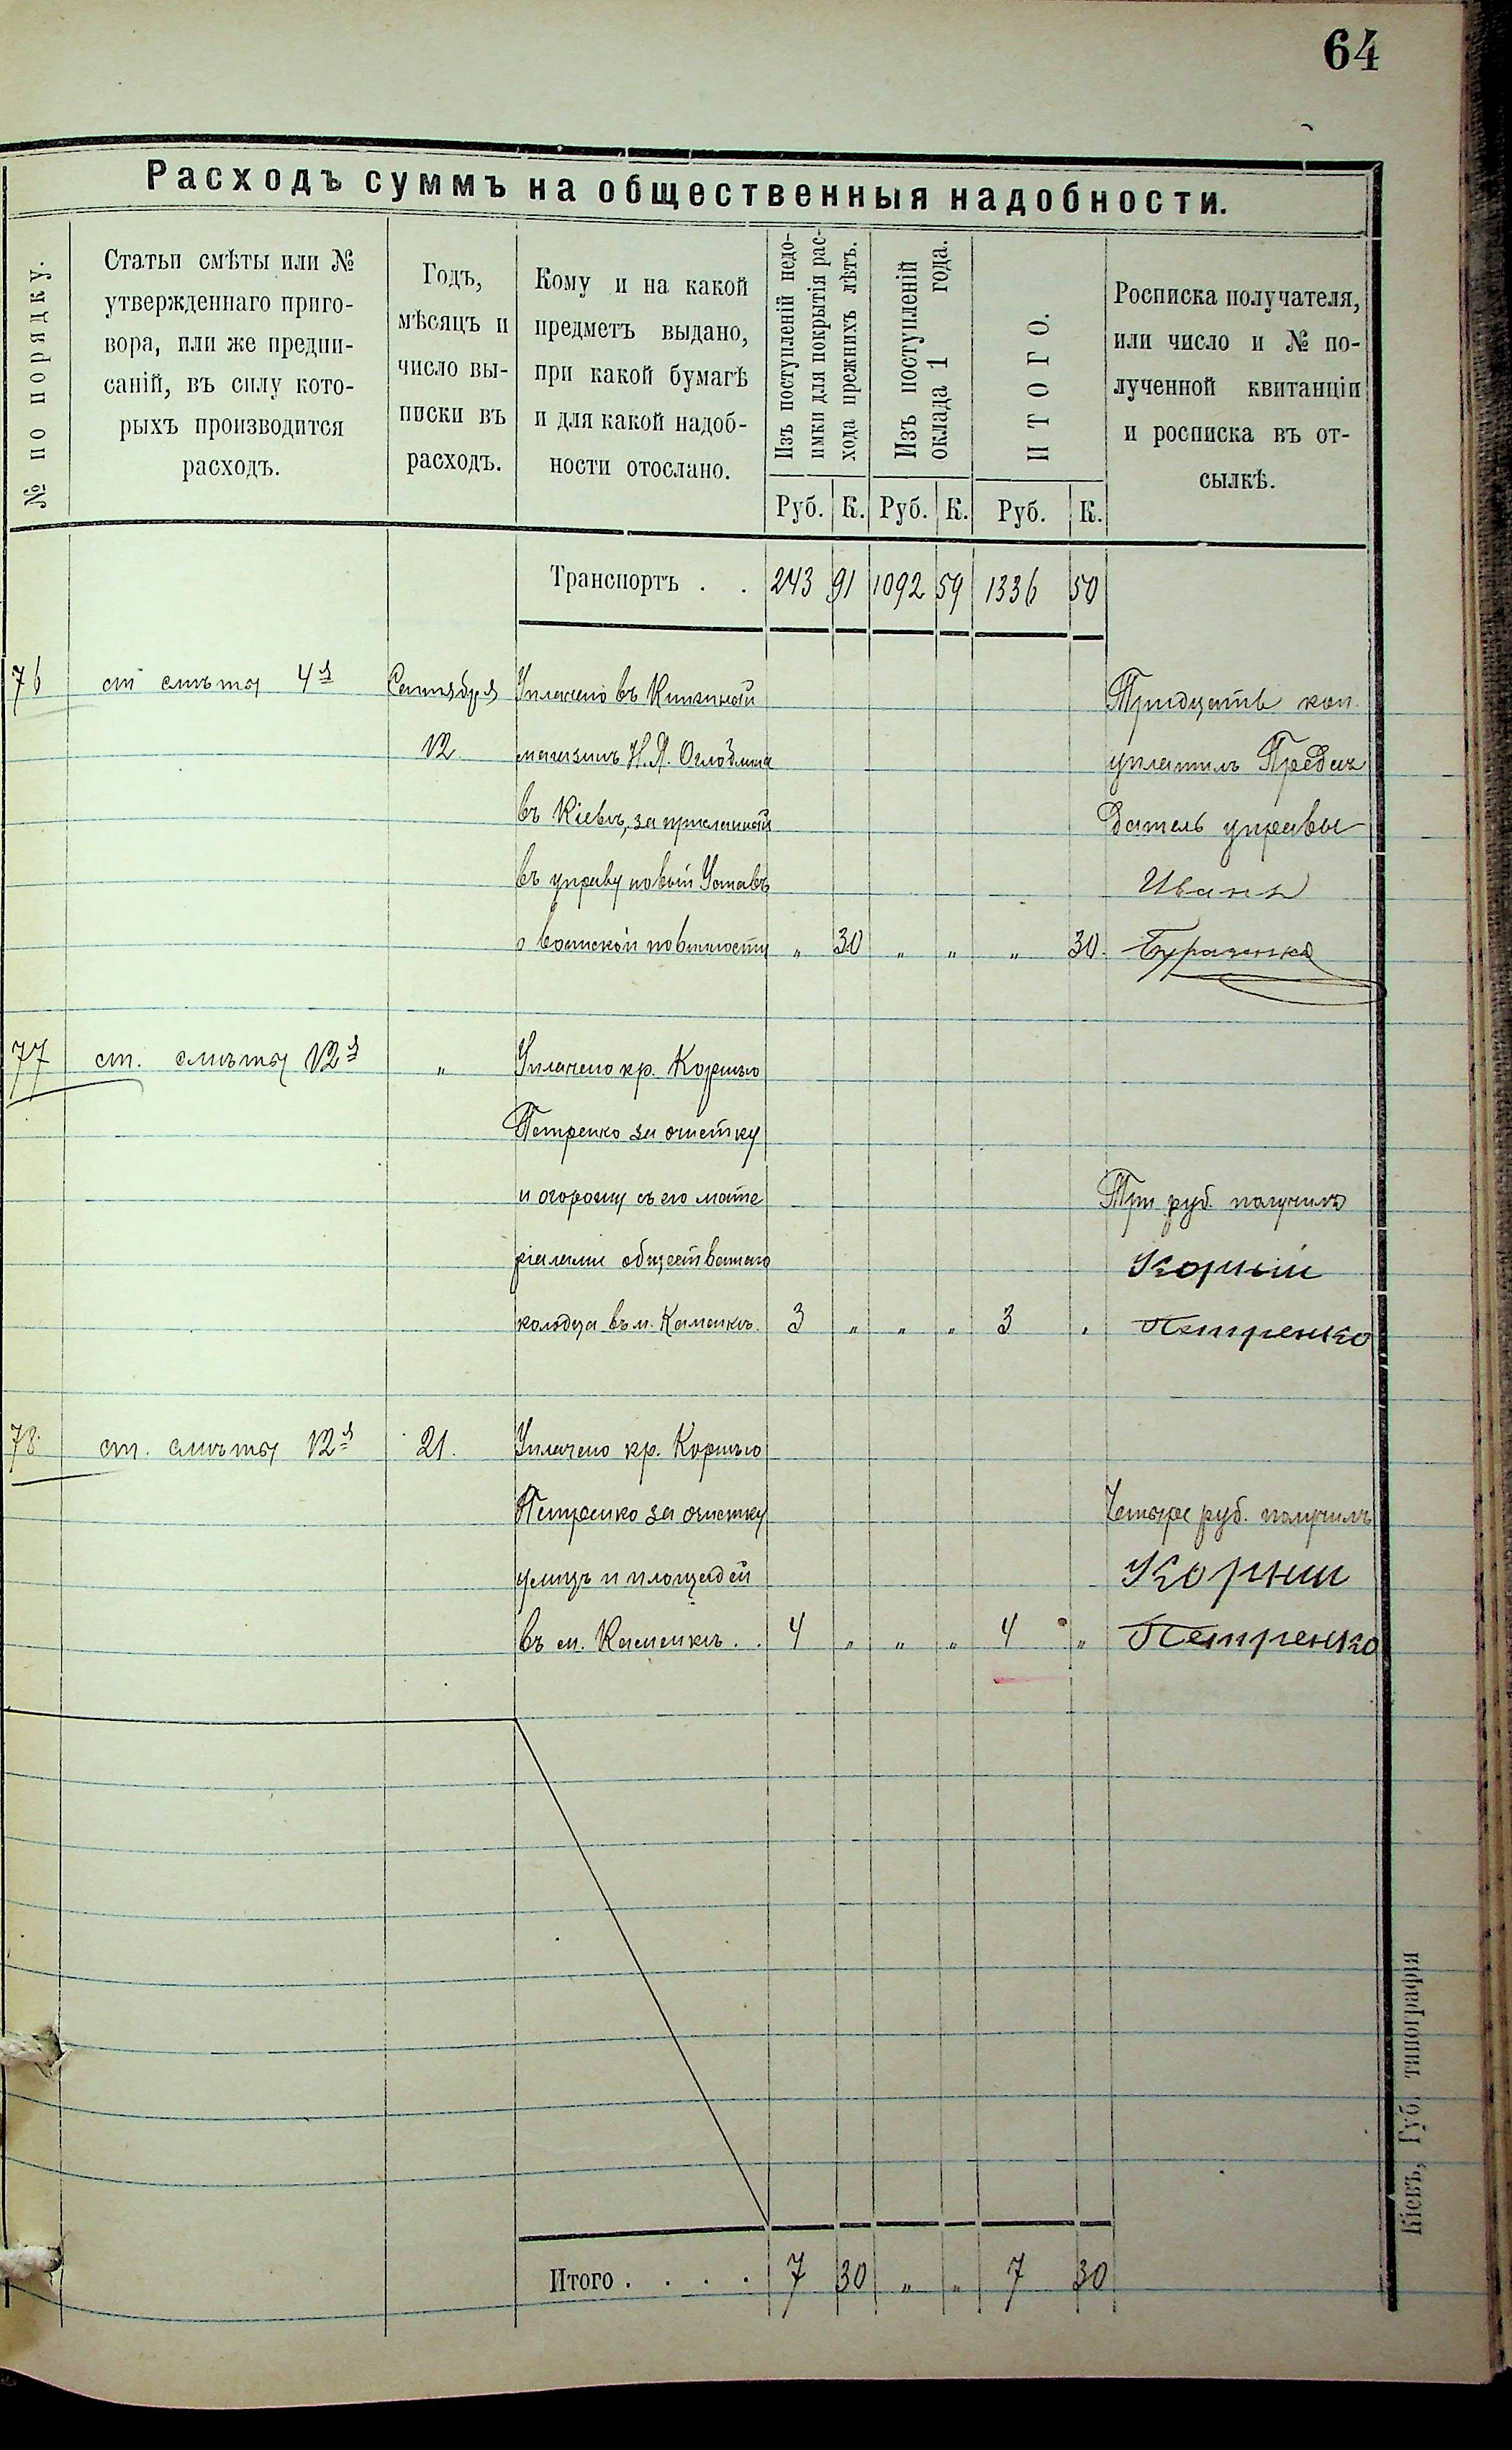 64
Расходъ суммъ на общественныя надобности.
№ по порядку.
Статьи смѣты или №
утвержденнаго приго-
вора, или же предпи-
саній, въ силу кото-
рыхъ производится
расходъ.
Годъ,
мѣсяцъ и
число вы-
писки въ
расходъ.
Кому и на какой
предметъ выдано,
при какой бумагѣ
и для какой надоб-
ности отослано.
Изъ поступленій недо-
имки для покрытія рас-
хода прежнихъ лѣтъ.
Изъ поступленій
оклада 1 года.
ИТОГО.
Росписка получателя,
или число и № по-
лученной квитанціи
и росписка въ от-
сылкѣ.
Руб. К. Руб. К. Руб. К.
Транспортъ . . 243 91 1092 59 1336 50
76 ст смѣты 4я Сентября Уплачено въ Книжный Тридцать коп.
12 магазинъ Н.Я. Оглоблина уплатилъ Предсѣ
въ Кіевѣ, за присланный датель управы
въ управу новый Уставъ Иванъ
о воинской повинности „ 30 „ „ „ 30.
77 ст. смѣты 12я „ Уплачено кр. Корнѣю
Петренко за очистку
и огорожу съ его мате Три руб. получилъ
ріалами общественнаго Корній
колодца въ м. Каменкѣ. 3 „ „ „ 3 „ Петренко
78 ст. смѣты 12я 21. Уплачено кр. Корнѣю
Петренко за очистку Четыре руб. получилъ
улицъ и площадей Корний
въ м. Каменкѣ . . 4 „ „ „ 4 „ Петренко
Итого . . . . 7 30 „ „ 7 30
Кіевъ, Губ. типографія